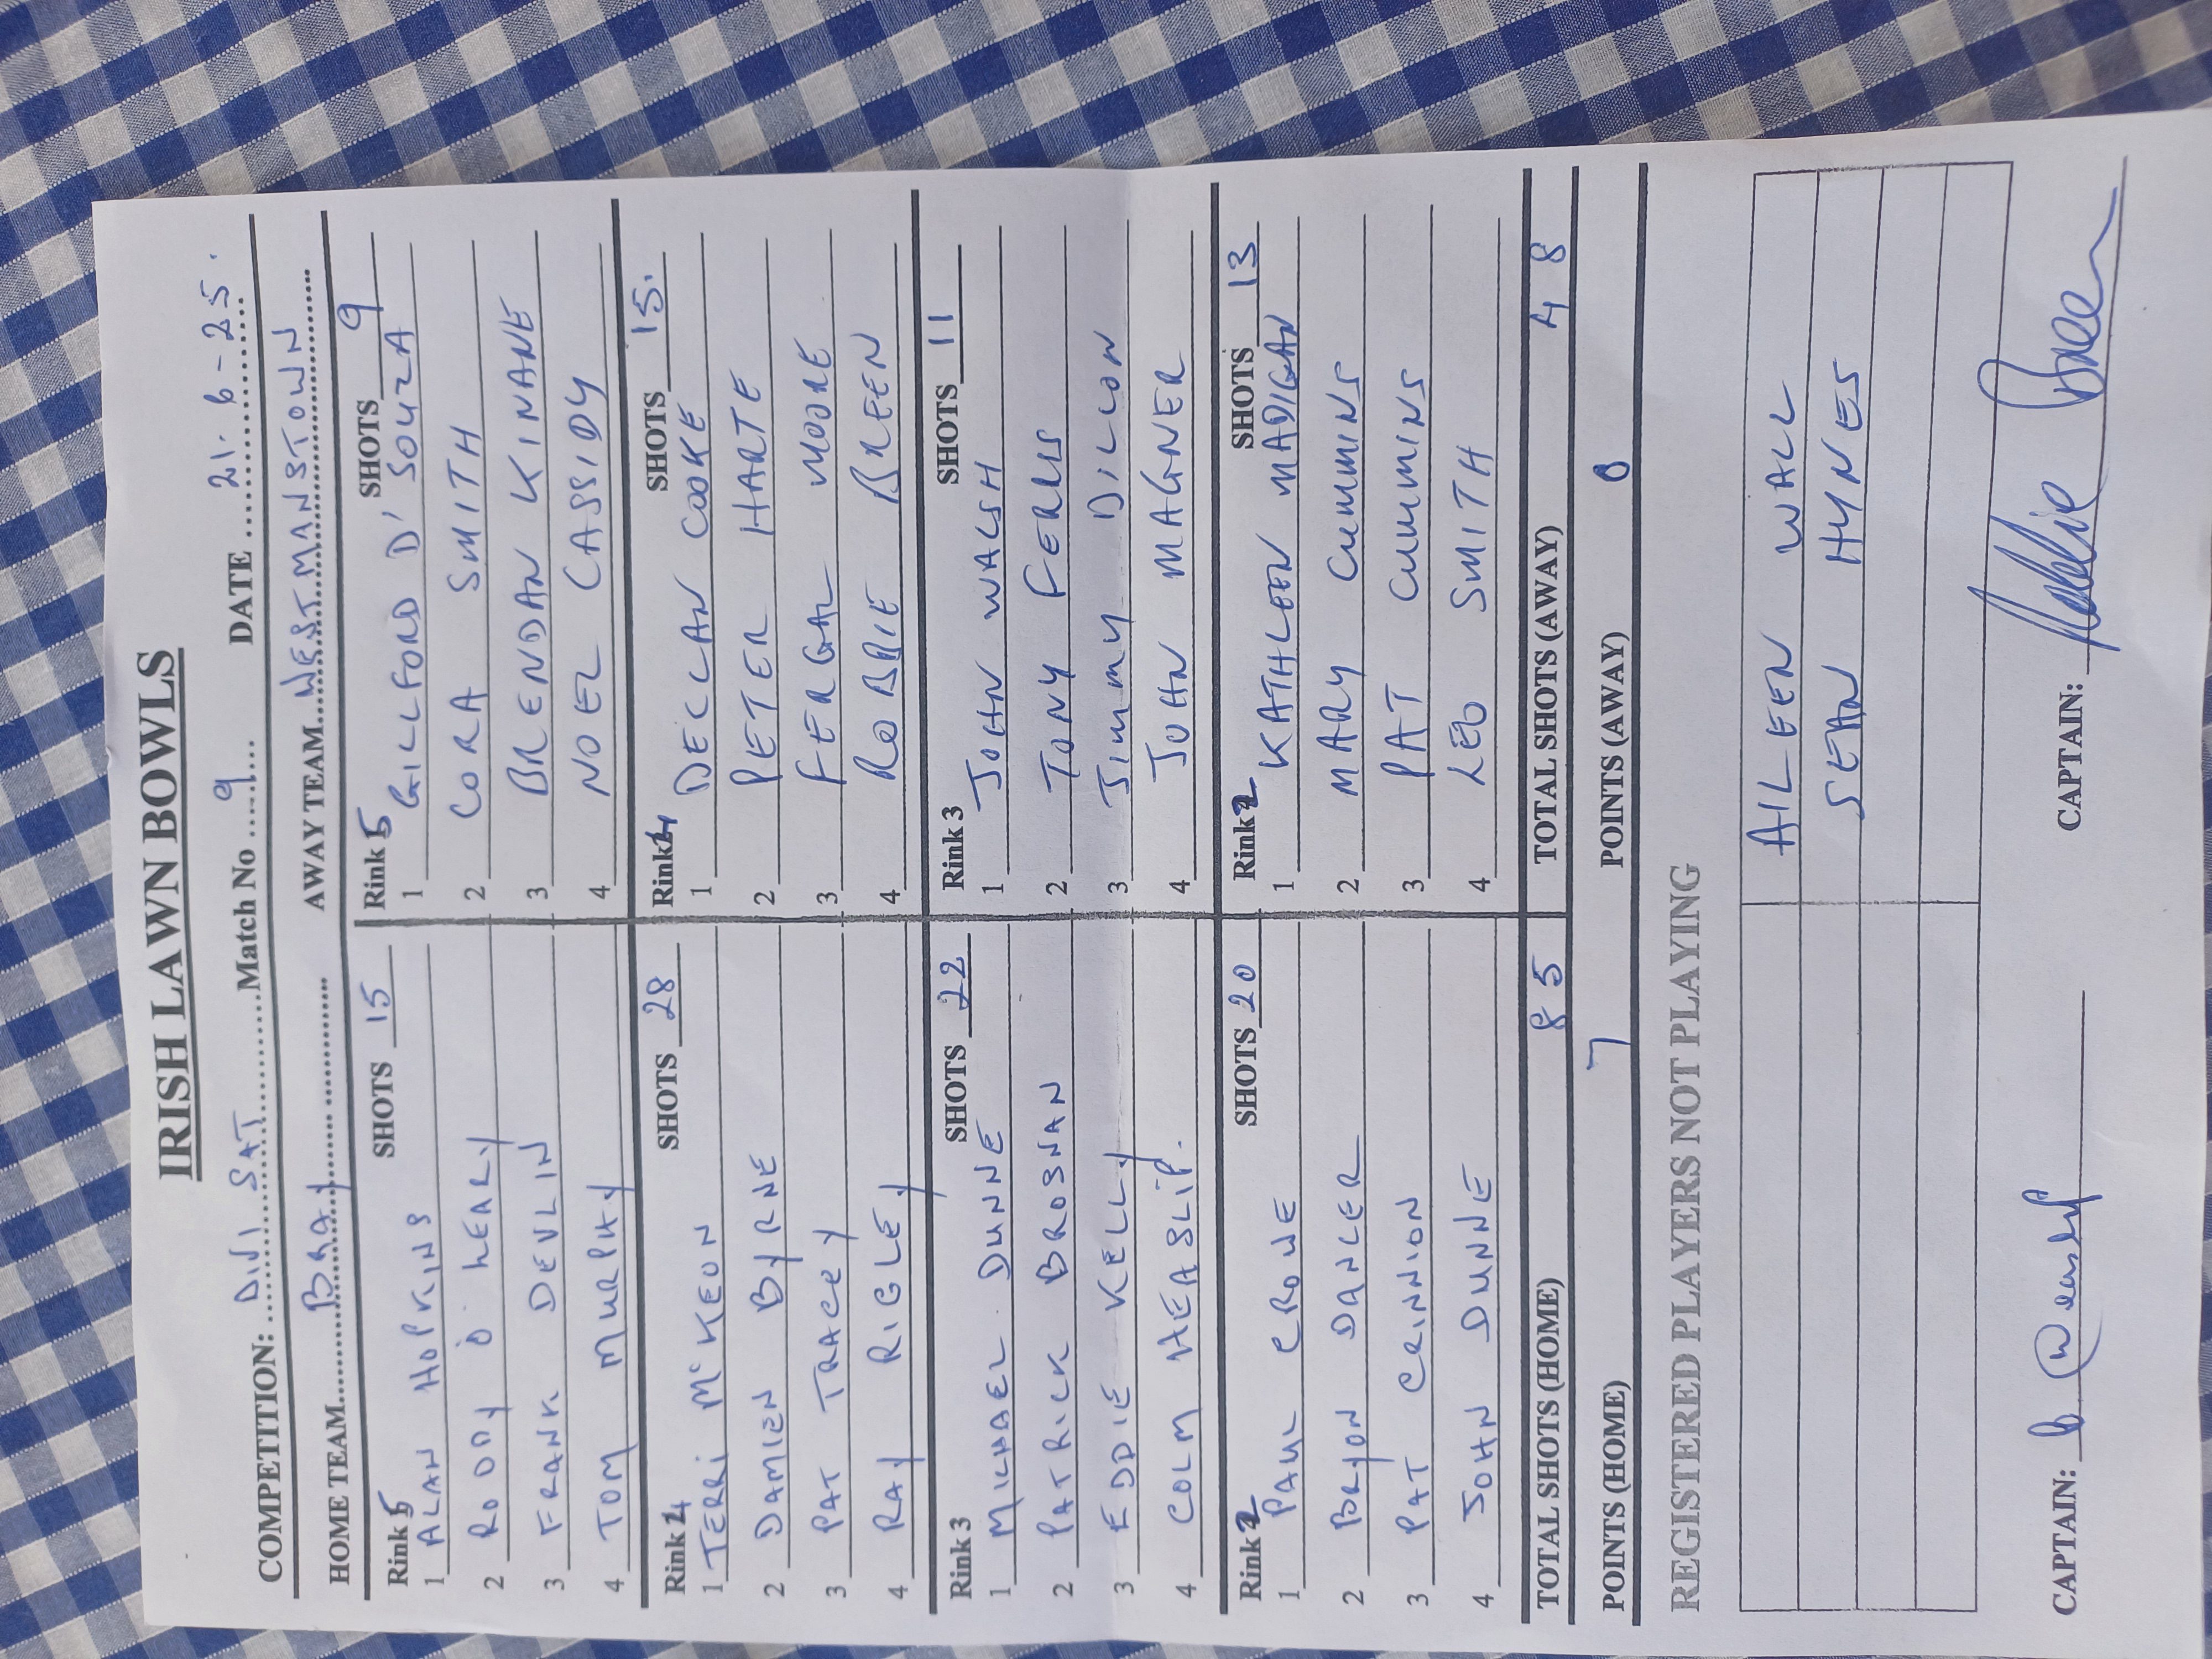 IRISH LAWN BOWLS
COMPETITION: DIV 1 SAT Match No 9 DATE 21.6-25.
HOME TEAM BRAY AWAY TEAM WESTMANSTOWN
Rink 5 SHOTS 15 Rink 5 SHOTS 9
1 ALAN HOPKINS 1 GILLFORD D'SOUZA
2 RODDY O LEARY 2 CORA SMITH
3 FRANK DEVLIN 3 BRENDAN KINANE
4 TOM MURPHY 4 NOEL CASSIDY
Rink 4 SHOTS 28 Rink 4 SHOTS 15.
1 TERRI McKEON 1 DECLAN COOKE
2 DAMIEN BYRNE 2 PETER HARTE
3 PAT TRACEY 3 FERGAL MOORE
4 RAY RIGLEY 4 ROBBIE BREEN
Rink 3 SHOTS 22 Rink 3 SHOTS 11
1 MICHAEL DUNNE 1 JOHN WALSH
2 PATRICK BROSNAN 2 TONY FERRIS
3 EDDIE KELLY 3 Jimmy DILLON
4 COLM HEASLIP. 4 JOHN MAGNER
Rink 2 SHOTS 20 Rink 2 SHOTS 13
1 PAUL CROWE 1 KATHLEEN MADIGAN
2 BRYON DANCER 2 MARY CUMMINS
3 PAT CRINNION 3 PAT CUMMINS
4 JOHN DUNNE 4 LEO SMITH
TOTAL SHOTS (HOME) 85 TOTAL SHOTS (AWAY) 48
POINTS (HOME) 7 POINTS (AWAY) 0
REGISTERED PLAYERS NOT PLAYING
AILEEN WALL
SEAN HYNES
CAPTAIN: CAPTAIN: Robbie Breen